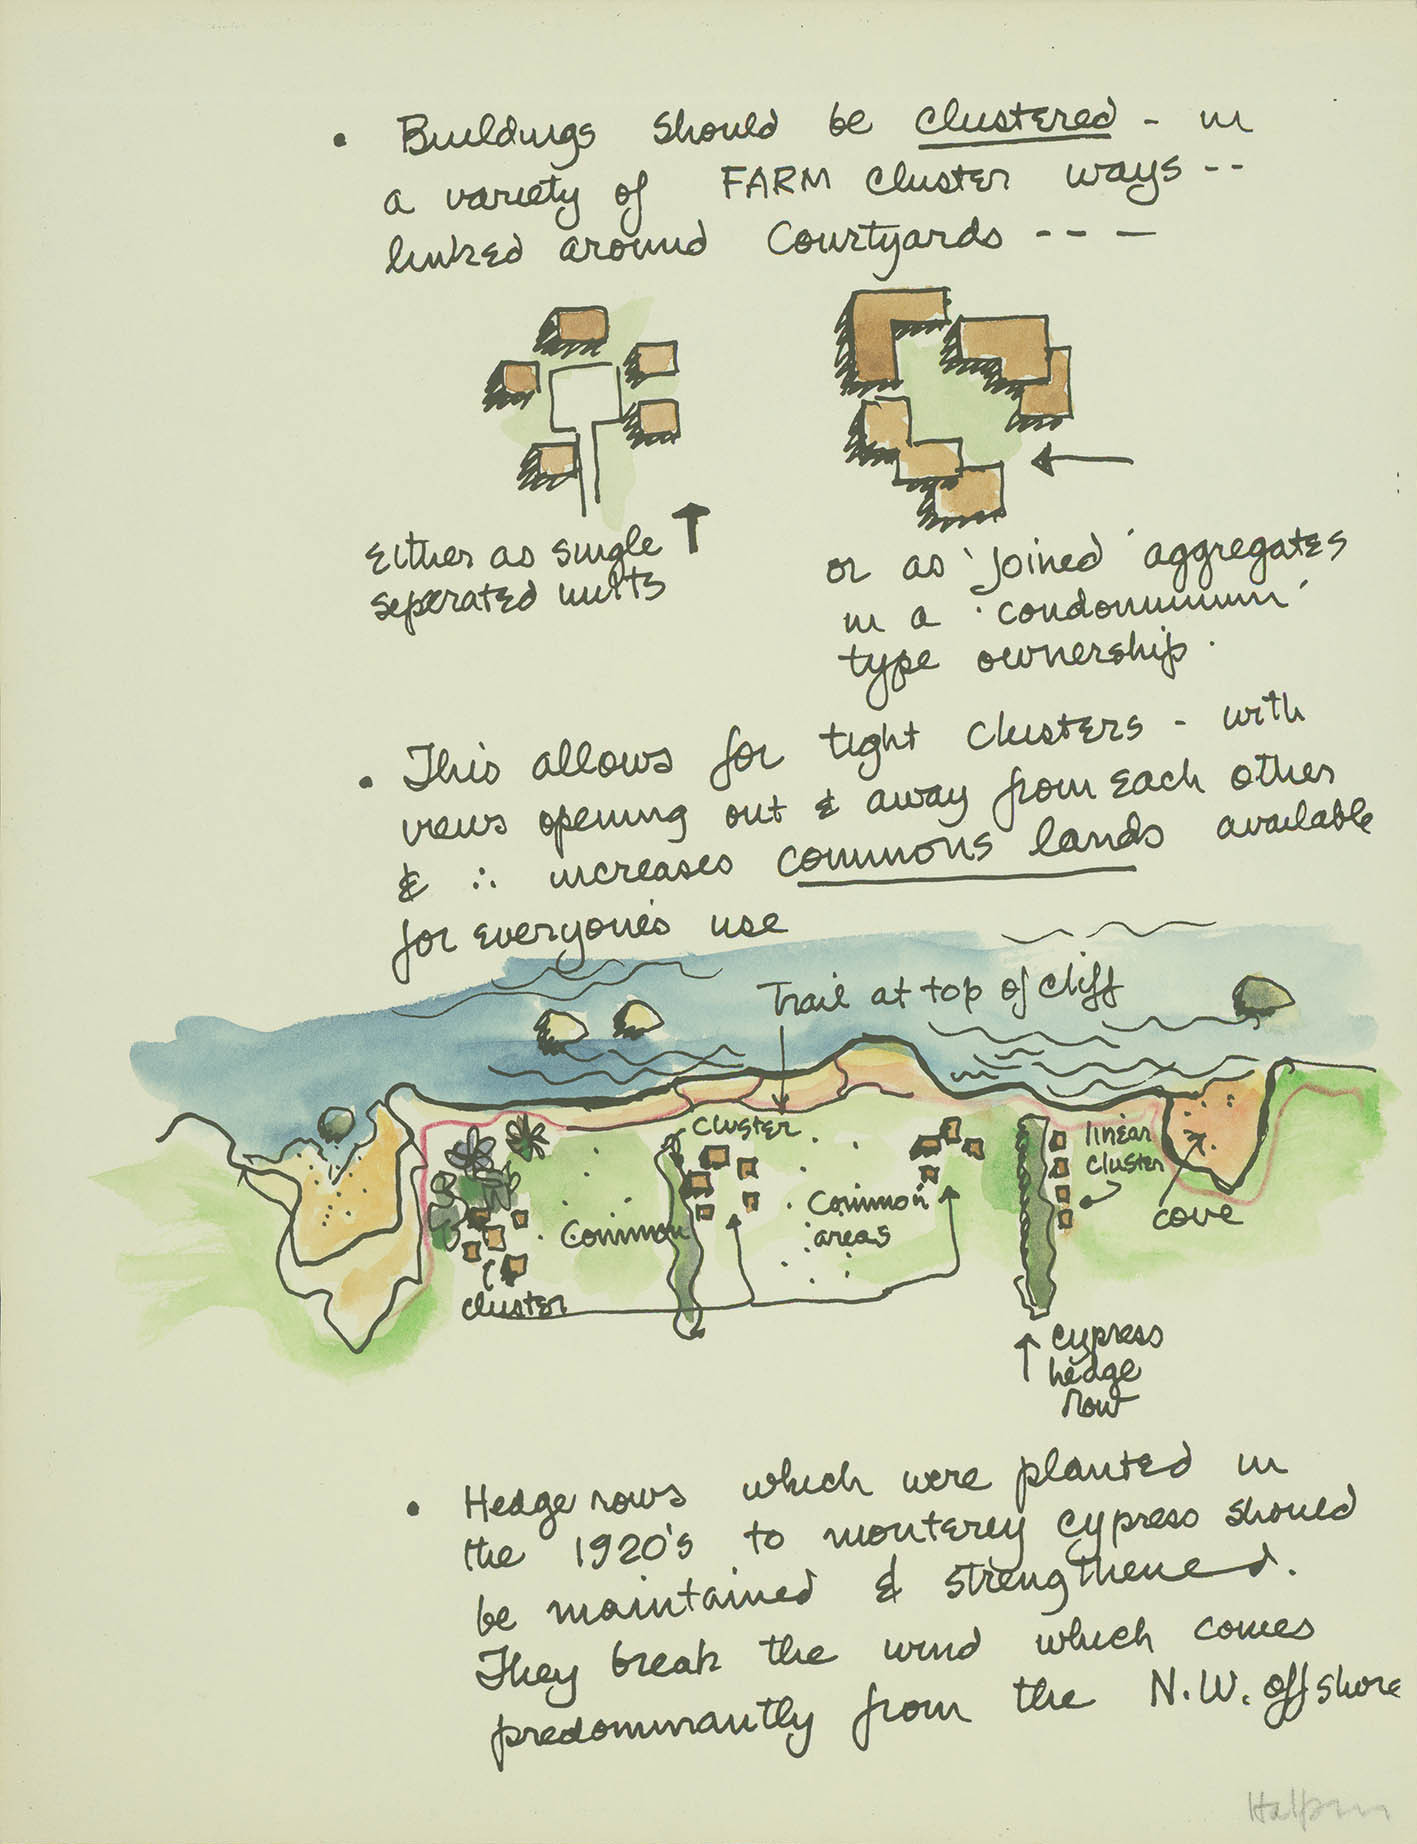 • Buildings should be clustered - in
a variety of FARM cluster ways --
linked around Courtyards ---
either as single
seperated units
or as 'joined' aggregates
in a 'condominium'
type ownership.
• This allows for tight clusters - with
views opening out & away from each other
& ∴ increases commons lands available
for everyone's use
Trail at top of cliff
cluster
linear
cluster
Common
Common
areas
cove
cluster
cypress
hedge
row
• Hedge rows which were planted in
the 1920's to monterey cypress should
be maintained & strengthened.
They break the wind which comes
predominantly from the N.W. offshore
Halprin